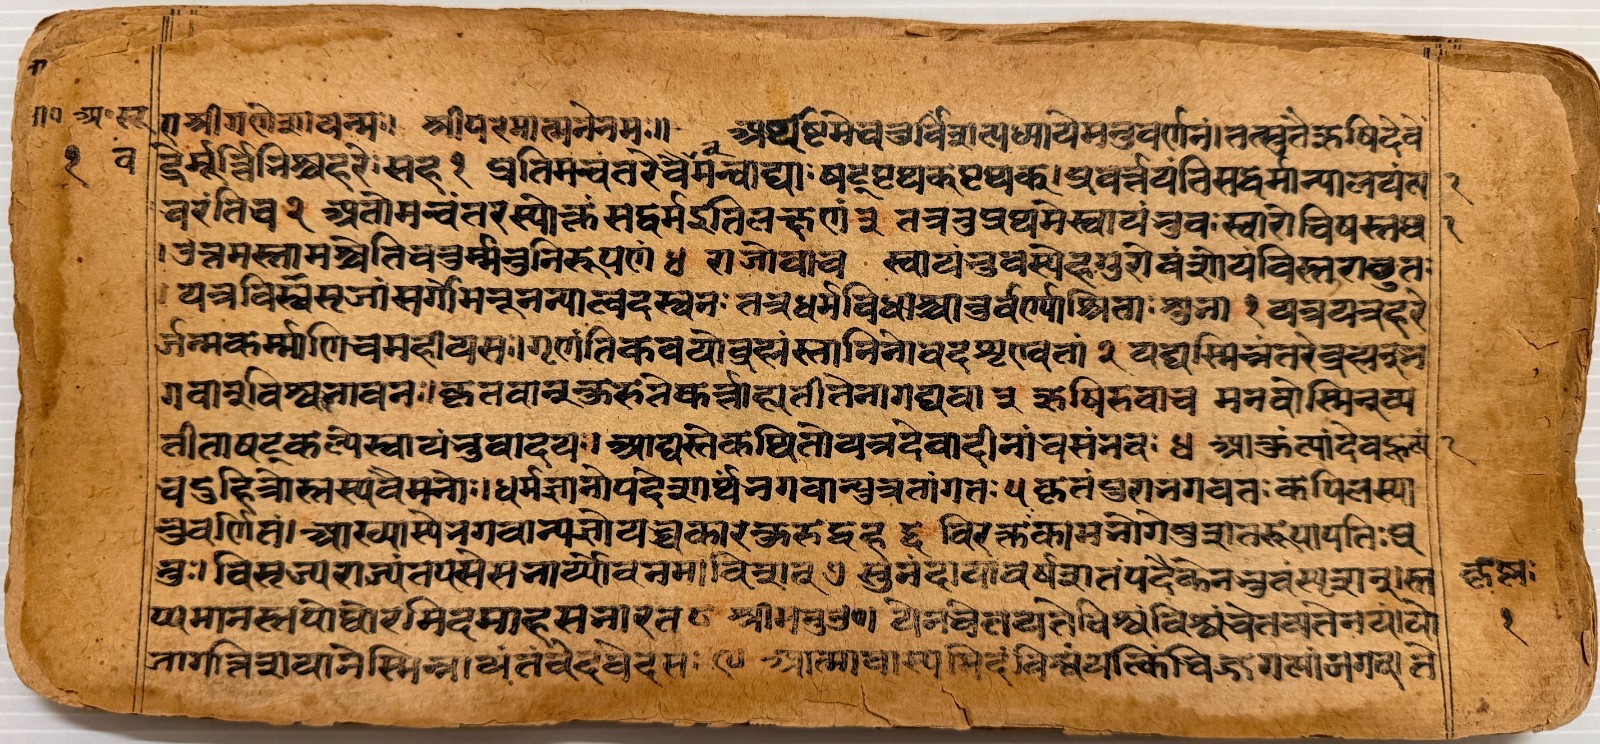 भा॰ अ॰ स्क
१
॥श्रीगणेशायनमः॥ श्रीपरमात्मनेनमः॥ अथाष्टमेचतुर्विंशत्यध्यायेमनुवर्णनं।तत्सुतैर्ऋषिदेवें
द्रैर्मूर्त्तिभिश्चहरेःसह१ प्रतिमन्वंतरेचैवंमन्वाद्याःषट्पृथक्पृथक्।प्रवर्त्तयंतिसद्धर्मान्पालयंत्या
चरंतिच२ अतोमन्वंतरस्योक्तंसद्धर्मइतिलक्षणं३ तत्रतुप्रथमेस्वायंभुवःस्वारोचिषस्तथा
।उत्तमस्तामसश्चेतिचतुर्म्मनुनिरूपणं४ राजोवाच स्वायंभुवस्येहगुरोवंशोयंविस्तराच्छ्रुतः
।यत्रविश्वसृजांसर्गोमनूनन्यान्वदस्वनः तत्रधर्मविधाश्चातुर्वर्ण्याश्रिताःशुभा१ यत्रयत्रहरे
र्जन्मकर्म्माणिचमहीयसः।गृणंतिकवयोब्रह्मंस्तानिनोवदशृण्वतां२ यद्यस्मिन्नंतरेब्रह्मन्भ
गवान्विश्वभावनः।कृतवान्कुरुतेकर्त्ताह्यतीतेनागद्यवा३ ऋषिरुवाच मनवोस्मिन्व्य
तीताषट्कल्पेस्वायंभुवादयः।आद्यस्तेकथितोयत्रदेवादीनांचसंभवः४ आकूत्यांदेवहूत्यां
चदुहित्रोस्तस्यवैमनोः।धर्मज्ञानोपदेशार्थंभगवान्पुत्रतांगतः५ कृतंपुराभगवतःकपिलस्या
नुवर्णितं।आख्यास्येभगवान्यज्ञोयच्चकारकुरूद्वह६ विरक्तःकामभोगेषुशतरूपापतिःप्र
भुः।विसृज्यराज्यंतपसेसभार्य्योवनमाविशत्७ सुनंदायांवर्षशतंपदैकेनभुवंस्पृशन्।त
प्यमानस्तपोघोरमिदमाहसभारत८ श्रीमनुरु० येनचेतयतेविश्वंविश्वंचेतयतेनयं।यो
जागर्त्तिशयानेस्मिन्नायंतंवेदवेदसः९ आत्मावास्यमिदंविश्वंयत्किंचिज्जगत्यांजगत्।ते
कृष्णः
१